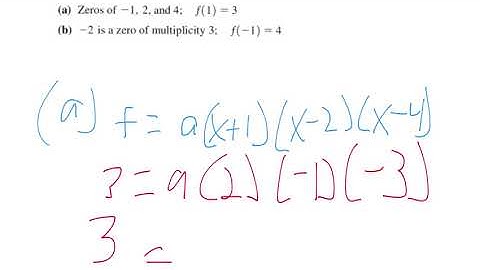 (a) Zeros of −1, 2, and 4; f(1) = 3
(b) −2 is a zero of multiplicity 3; f(−1) = 4
(a) f = a(x+1)(x−2)(x−4)
3 = a(2)(−1)(−3)
3 =